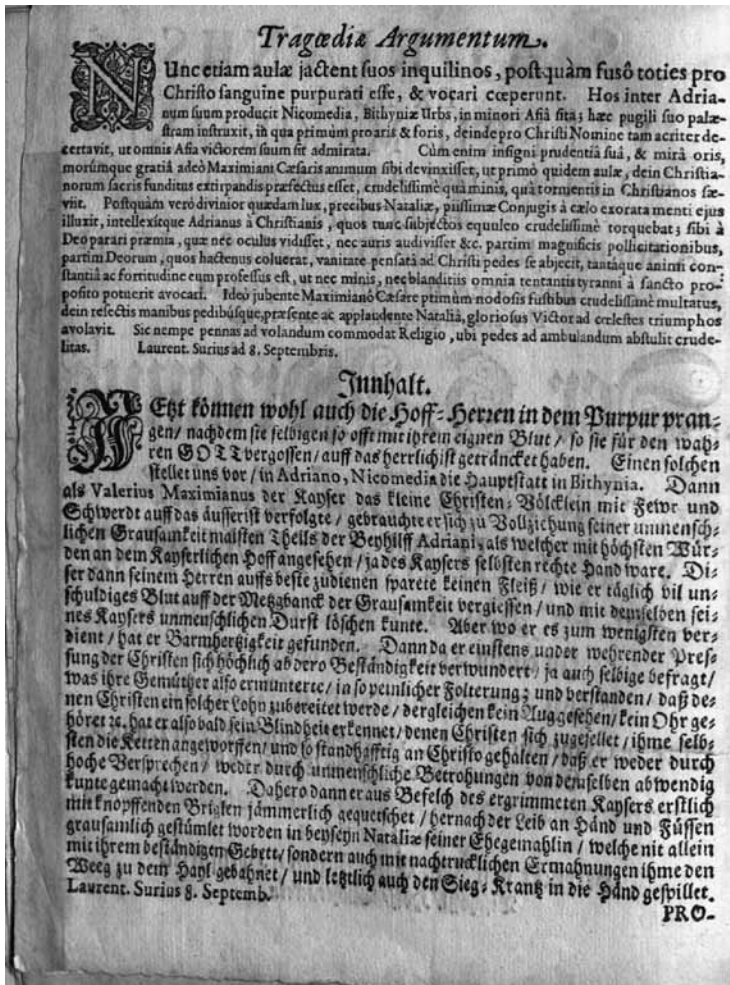 Tragœdiæ Argumentum.
NUnc etiam aulæ jactent suos inquilinos, postquàm fusô toties pro
Christo sanguine purpurati esse, & vocari cœperunt. Hos inter Adria-
num suum producit Nicomedia, Bithyniæ Urbs, in minori Asiâ sita; hæc pugili suo palæ-
stram instruxit, in qua primùm pro aris & foris, deinde pro Christi Nomine tam acriter de-
certavit, ut omnis Asia victorem suum sit admirata. Cùm enim insigni prudentiâ suâ, & mirâ oris,
morúmque gratiâ adeò Maximiani Cæsaris animum sibi devinxisset, ut primò quidem aulæ, dein Christia-
norum sacris funditus extirpandis præfectus esset, crudelissimè quà minis, quà tormentis in Christianos sæ-
viit. Postquàm verò divinior quædam lux, precibus Nataliæ, piissimæ Conjugis à cælo exorata menti ejus
illuxit, intellexitque Adrianus à Christianis, quos tunc subjectos equuleo crudelissimè torquebat; sibi à
Deo parari præmia, quæ nec oculus vidisset, nec auris audivisset &c. partim magnificis pollicitationibus,
partim Deorum, quos hactenus coluerat, vanitate pensatâ ad Christi pedes se abjecit, tantâque animi con-
stantiâ ac fortitudine eum professus est, ut nec minis, nec blanditiis omnia tentantis tyranni à sancto pro-
posito potuerit avocari. Ideò jubente Maximianô Cæsare primùm nodosis fustibus crudelissimè multatus,
dein resectis manibus pedibúsque, præsente ac applaudente Nataliâ, gloriosus Victor ad cœlestes triumphos
avolavit. Sic nempe pennas ad volandum commodat Religio, ubi pedes ad ambulandum abstulit crude-
litas. Laurent. Surius ad 8. Septembris.
Innhalt.
JEtzt können wohl auch die Hoff-Herren in dem Purpur pran-
gen/ nachdem sie selbigen so offt mit ihrem eignen Blut / so sie für den wah-
ren GOTT vergossen / auff das herrlichist getráncket haben. Einen solchen
stellet uns vor / in Adriano, Nicomedia die Hauptstatt in Bithynia. Dann
als Valerius Maximianus der Kayser das kleine Christen-Völcklein mit Fewr und
Schwerdt auff das áusserist verfolgte / gebrauchte er sich zu Vollziehung seiner unmensch-
lichen Grausamkeit maisten Theils der Beyhilff Adriani, als welcher mit höchsten Wür-
den an dem Kayserlichen Hoff angesehen / ja des Kaysers selbsten rechte Hand ware. Di-
ser dann seinem Herren auffs beste zudienen sparete keinen Fleiß / wie er táglich vil un-
schuldiges Blut auff der Metzgbanck der Grausamkeit vergiessen / und mit demselben sei-
nes Kaysers unmenschlichen Durst löschen kunte. Aber wo er es zum wenigsten ver-
dient / hat er Barmhertzigkeit gefunden. Dann da er einstens under wehrender Pres-
sung der Christen sich höchlich ab dero Bestándigkeit verwundert / ja auch selbige befragt /
was ihre Gemüther also ermunterte / in so peinlicher Folterung; und verstanden / daß de-
nen Christen ein solcher Lohn zubereitet werde / dergleichen kein Aug gesehen / kein Ohr ge-
höret ꝛc. hat er alsobald sein Blindheit erkennet / denen Christen sich zugesellet / ihme selb-
sten die Ketten angeworffen / und so standhafftig an Christo gehalten / daß er weder durch
hoche Versprechen / weder durch unmenschliche Betrohungen von demselben abwendig
kunte gemacht werden. Dahero dann er aus Befelch des ergrimmeten Kaysers erstlich
mit knopffenden Briglen jámmerlich gequetschet / hernach der Leib an Hánd und Füssen
grausamlich gestümlet worden in beyseyn Nataliæ seiner Ehegemahlin / welche nit allein
mit ihrem bestándigen Gebett / sondern auch mit nachtrucklichen Ermahnungen ihme den
Weeg zu dem Hayl gebahnet / und letztlich auch den Sieg-Krantz in die Hánd gespillet.
Laurent. Surius 8. Septemb.
PRO-